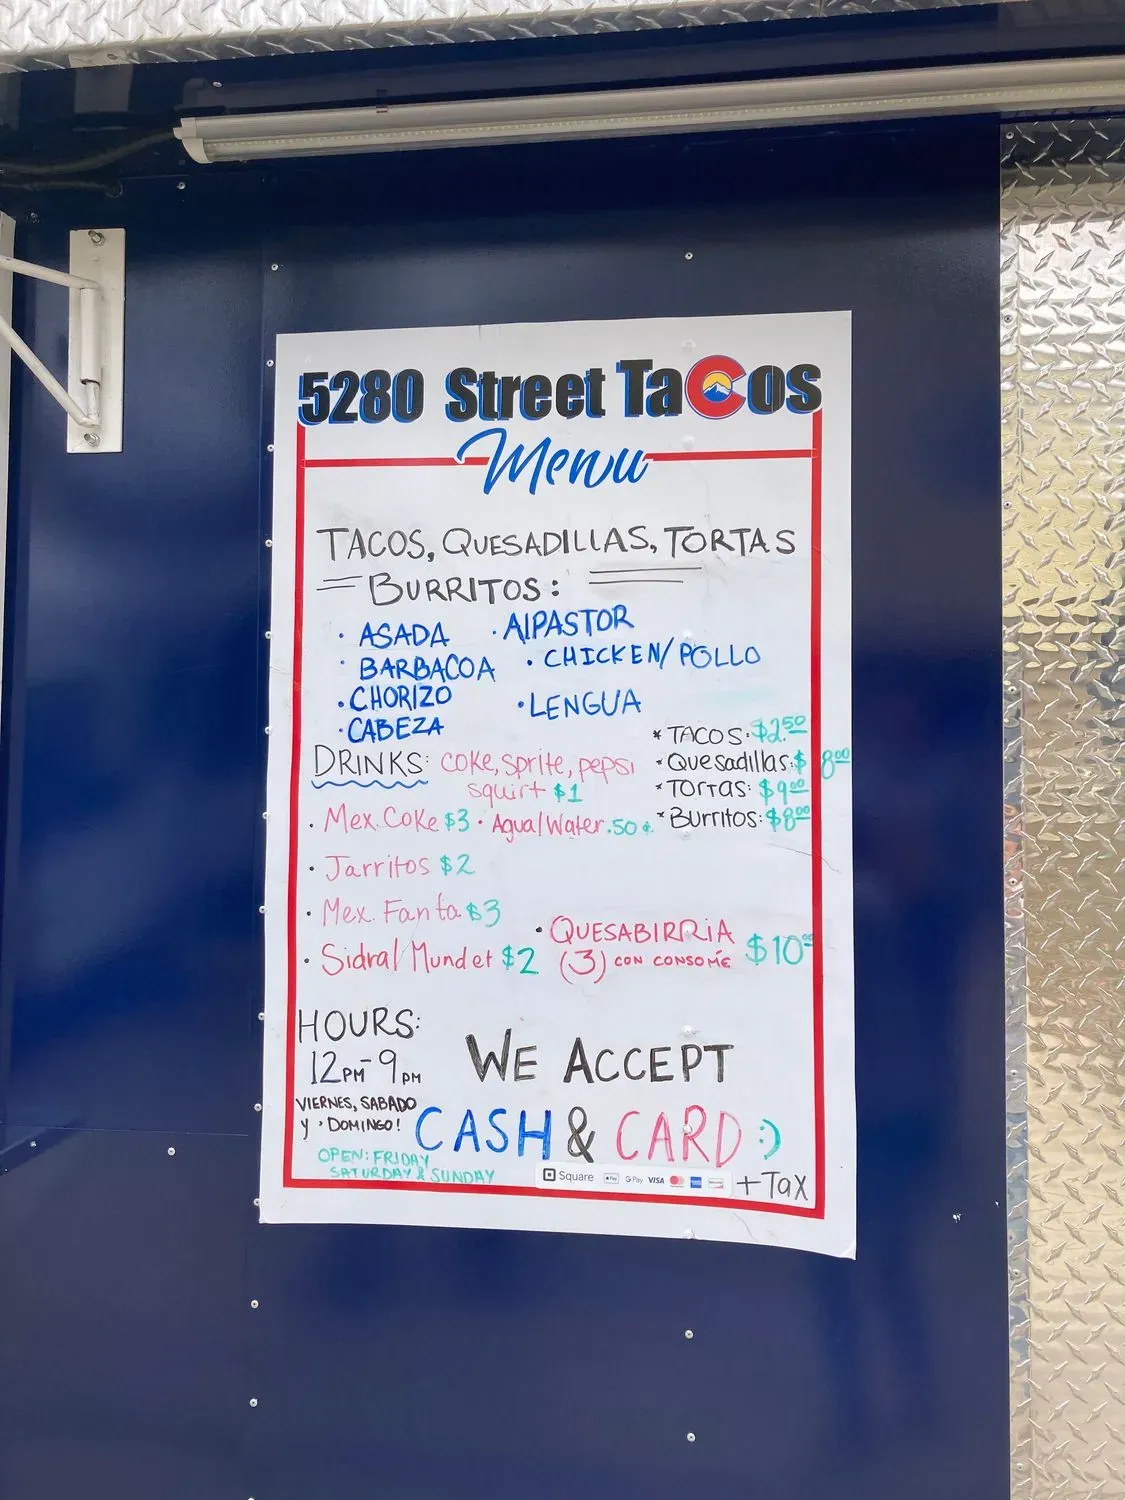 5280 Street Tacos
Menu
TACOS, QUESADILLAS, TORTAS
BURRITOS:
· ASADA · AlPASTOR
· BARBACOA · CHICKEN/POLLO
· CHORIZO · LENGUA
· CABEZA
* TACOS: $2.50
* Quesadillas: $8.00
* Tortas: $9.00
* Burritos: $8.00
DRINKS: Coke, Sprite, pepsi
squirt $1
· Mex. Coke $3 · Agua/Water .50¢
· Jarritos $2
· Mex. Fanta $3
· Sidral Mundet $2
· QUESABIRRiA
(3) CON CONSOMÉ $10.00
HOURS:
12PM-9PM
VIERNES, SABADO
y · DOMINGO!
OPEN: FRIDAY
SATURDAY & SUNDAY
WE ACCEPT
CASH & CARD :)
Square Pay G Pay VISA
+Tax